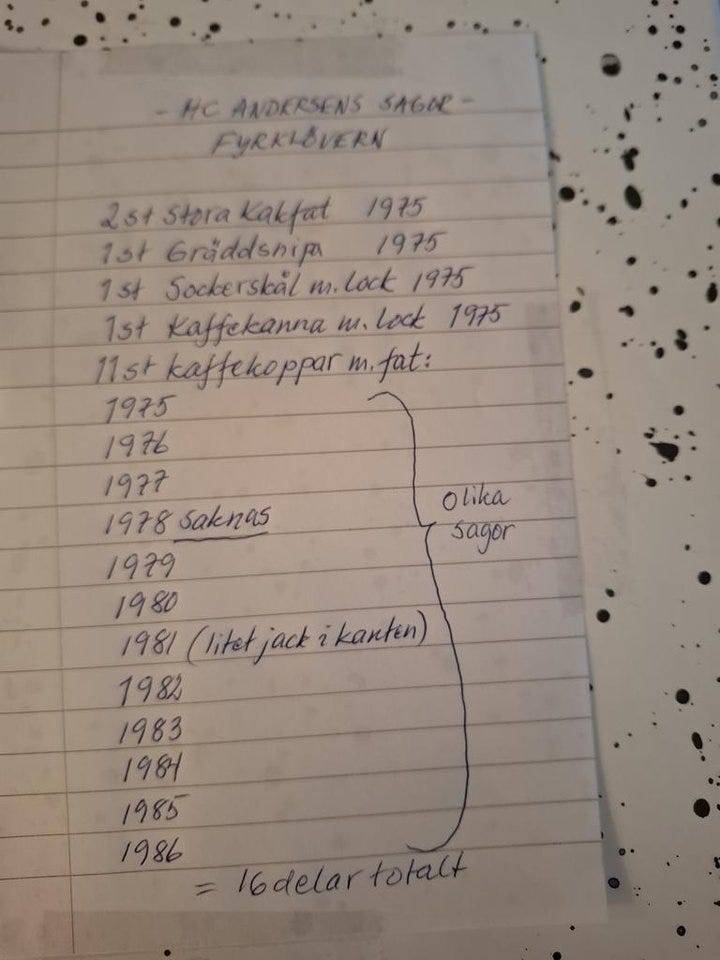 - HC ANDERSENS SAGOR -
FYRKLÖVERN
2st Stora Kakfat 1975
1st Gräddsnipa 1975
1st Sockerskål m. lock 1975
1st Kaffekanna m. lock 1975
11st kaffekoppar m. fat:
1975
1976
1977
1978 saknas
1979
1980
1981 (litet jack i kanten)
1982
1983
1984
1985
1986
olika
sagor
= 16 delar totalt